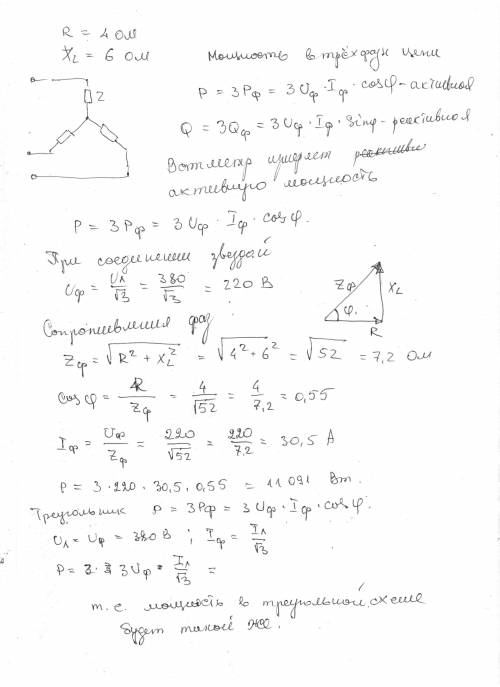 R = 4 ом
X_L = 6 ом
Мощность в трёхфазн цепи
Z
P = 3P_ф = 3U_ф · I_ф · cosφ - активная
Q = 3Q_ф = 3U_ф · I_ф · sinφ - реактивная
Ваттметр измеряет
активную мощность
P = 3P_ф = 3U_ф · I_ф · cosφ.
При соединении звездой
U_ф = U_Л/√3 = 380/√3 = 220 В
Z_ф
X_L
φ.
R
Сопротивления фаз
Z_ф = √(R² + X_L²) = √(4² + 6²) = √52 = 7,2 Ом
Cosφ = R/Z_ф = 4/√52 = 4/7,2 = 0,55
I_ф = U_ф/Z_ф = 220/√52 = 220/7,2 = 30,5 А
P = 3 · 220 · 30,5 · 0,55 = 11 091 Вт.
Треугольник P = 3P_ф = 3U_ф · I_ф · cosφ.
U_Л = U_ф = 380 В ; I_ф = I_Л/√3
P = 3 · 3U_ф · I_Л/√3 =
т. е. мощность в треугольной схеме
будет такой же.